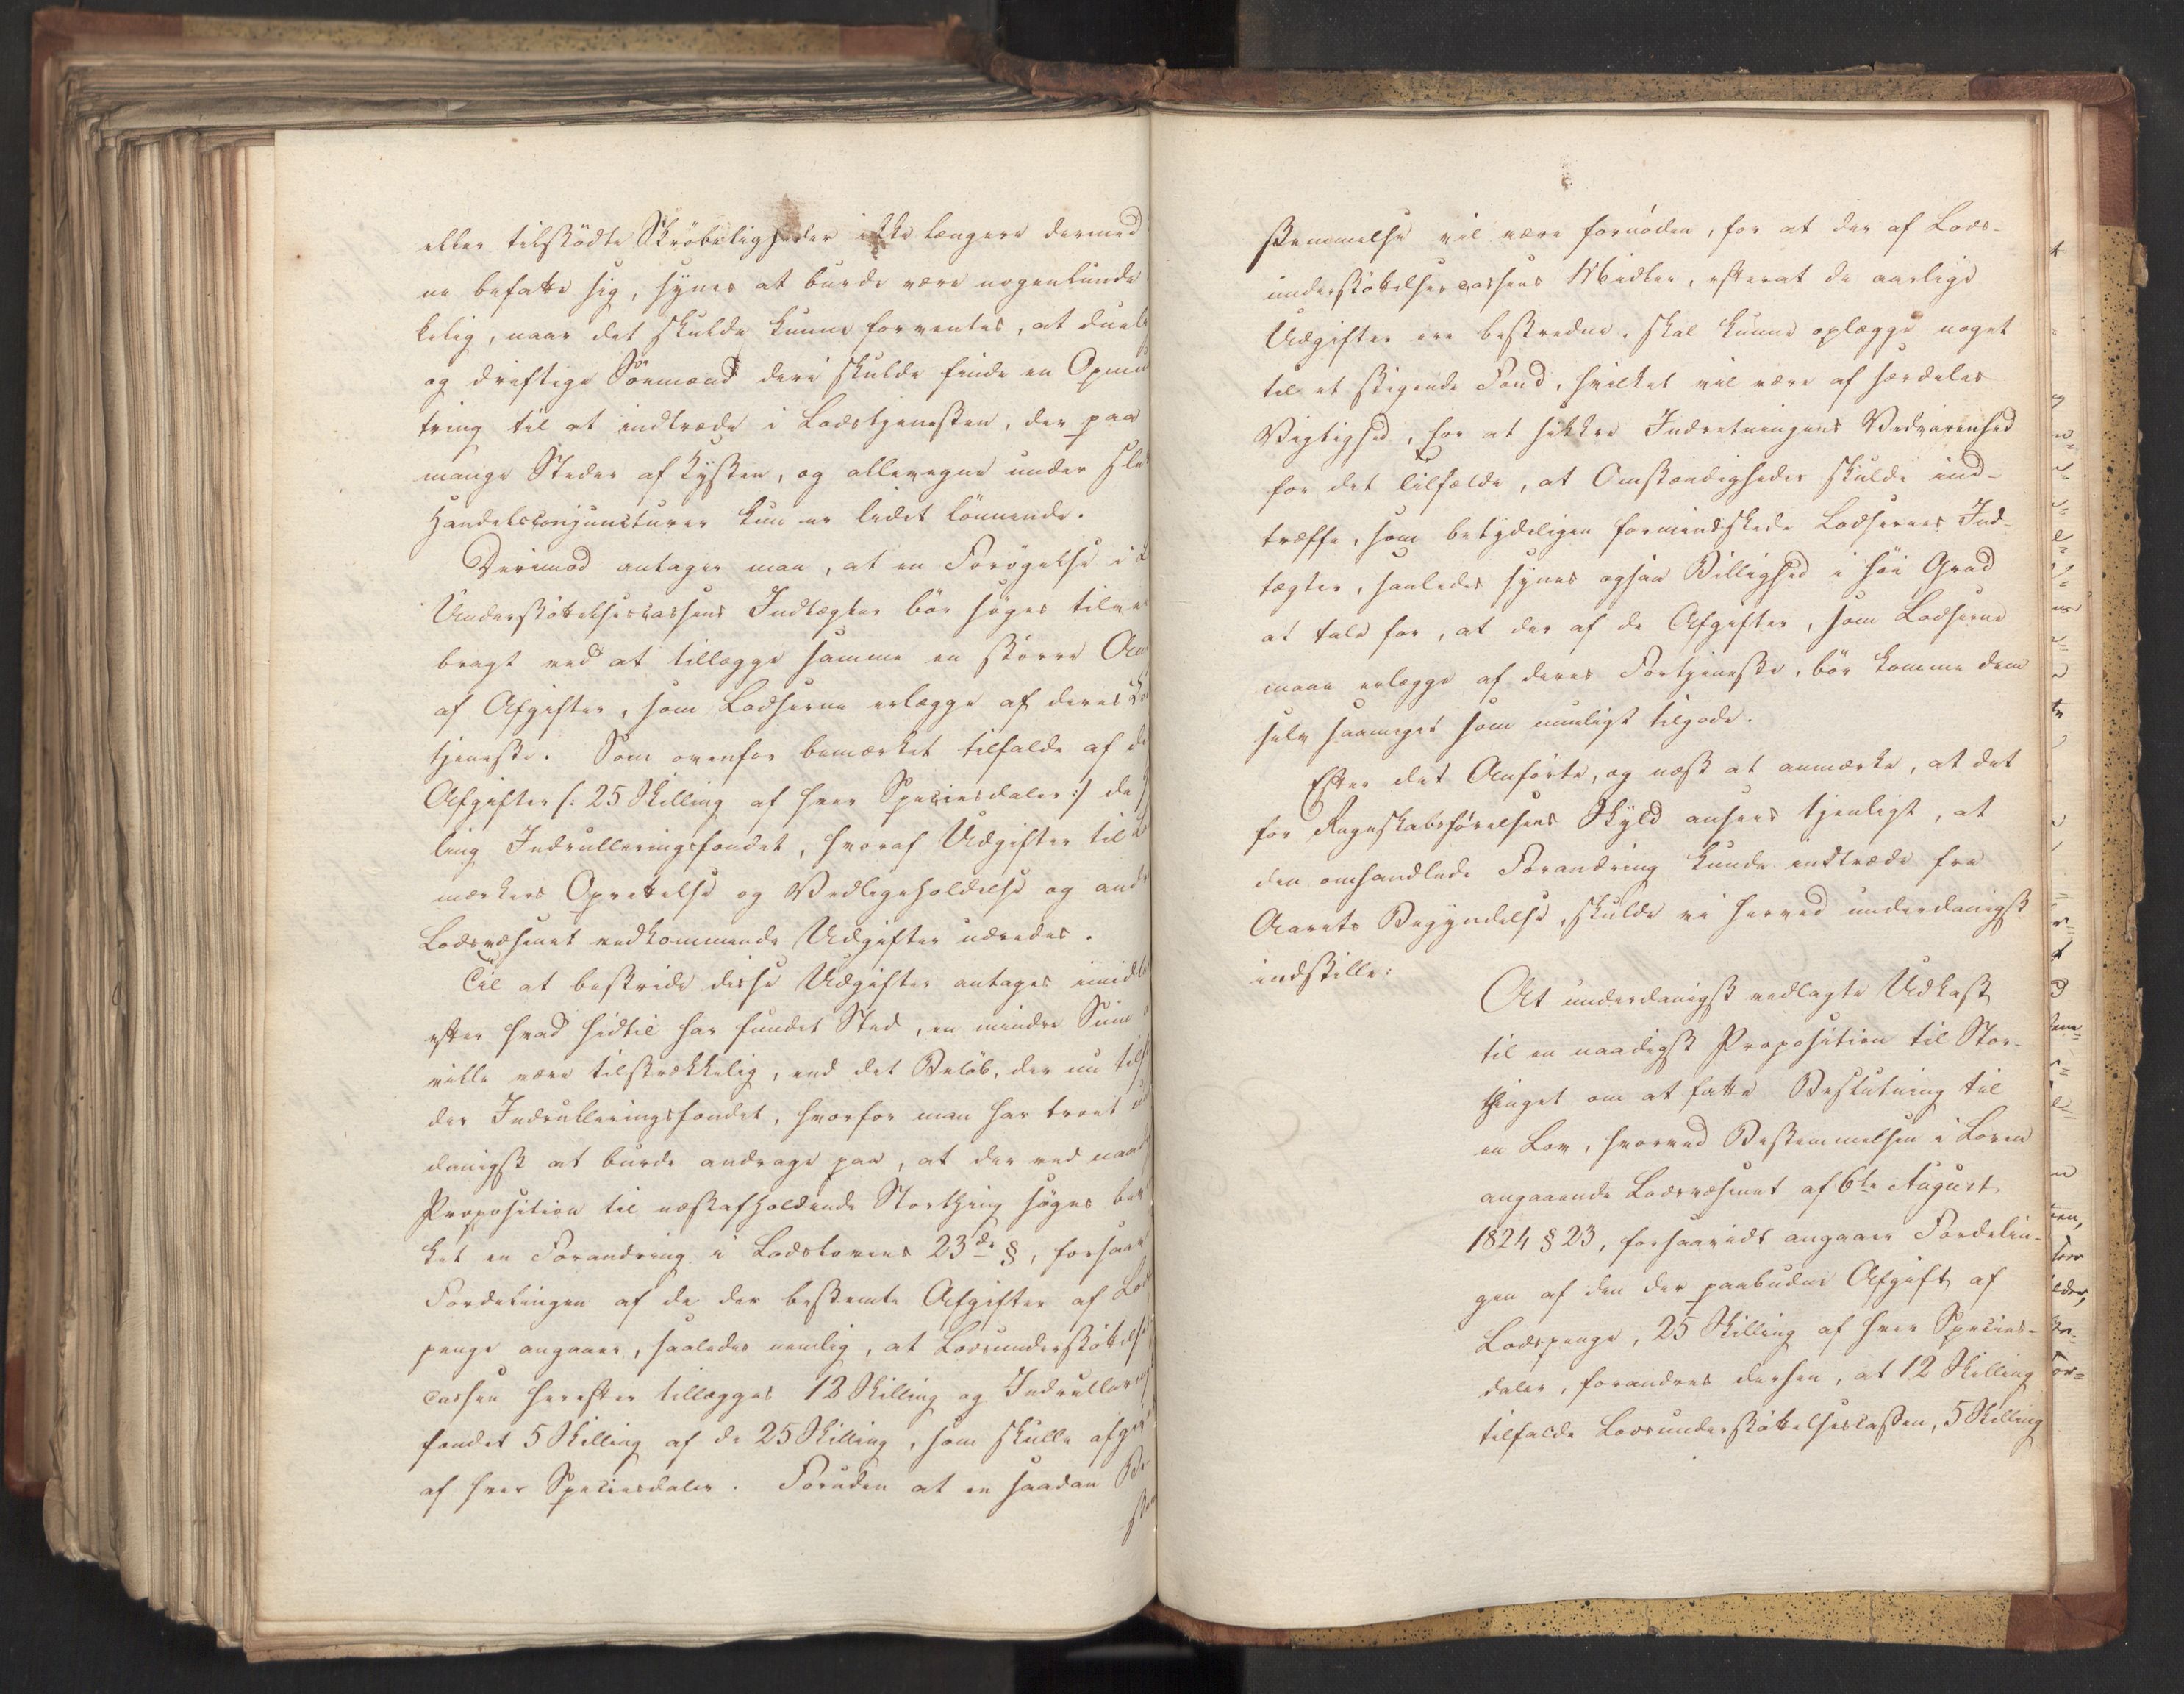 eller tilstödte Skröbeligheder ikke længere dermed
ne befatte sig, synes at burde være nogenlunde
kelig, naar det skulde kunne forventes, at duel
og driftige Sömænd deri skulde finde en Opmu
tring til at indtræde i Lodstjenesten, der paa
mange Steder af Kysten, og allevegne under sle
Handelsconjuncturer kun er lidet lönnende.
Derimod antager man, at en Forögelse i L
Understöttelsescassens Indtægter bör söges tilve
bragt ved at tillægge samme en större An
af Afgifter, som Lodserne erlægge af deres For
tjeneste. Som ovenfor bemærket tilfalde af de
Afgifter /: 25 Skilling af hver Speciesdaler :/ de
ling Indrulleringsfondet, hvoraf Udgifter til
mærkers Oprettelse og Vedligeholdelse og and
Lodsvæsenet vedkommende Udgifter udredes.
Til at bestride disse Udgifter antages imidle
efter hvad hidtil har fundet Sted, en mindre Sum
ville være tilstrækkelig, end det Belöb, der nu tilf
der Indrulleringsfondet, hvorfor man har troet un
danigst at burde andrage paa, at der ved naad
Proposition til næstafholdende Storthing söges be
ket en Forandring i Lodslovens 23de §, forsaav
Fordelingen af de der bestemte Afgifter af Lod
penge angaaer, saaledes nemlig, at Lodsunderstöttelse
cassen herefter tillægges 12 Skilling og Indrullering
fondet 5 Skilling af de 25 Skilling, som skulle afgi
af hver Speciesdaler. Foruden at en saadan Be
stem
stemmelse vil være fornöden, for at der af Lods-
understöttelsescassens Midler, efterat de aarlige
Udgifter ere bestredne, skal kunne oplægge noget
til et stigende Fond, hvilket vil være af særdeles
Vigtighed, for at sikkre Indretningens Vedvarenhed
for det Tilfælde, at Omstændigheder skulde ind-
træffe, som betydeligen formindskede Lodsernes Ind-
tægter, saaledes synes ogsaa Billighed i höi Grad
at tale for, at der af de Afgifter, som Lodserne
maae erlægge af deres Fortjeneste, bör komme dem
selv saameget som muligt tilgode.
Efter det Anförte, og næst at anmærke, at det
for Regnskabsförelsens Skyld ansees tjenligt, at
den omhandlede Forandring kunde indtræde fra
Aarets Begyndelse, skulde vi herved underdanigst
indstille:
At underdanigst vedlagte Udkast
til en naadigst Proposition til Stor-
thinget om at fatte Beslutning til
en Lov, hvorved Bestemmelsen i Loven
angaaende Lodsvæsenet af 6te August
1824 § 23, forsaavidt angaaer Fordelin-
gen af den der paabudne Afgift af
Lodspenge, 25 Skilling af hver Species-
daler, forandres derhen, at 12 Skilling
tilfalde Lodsunderstöttelsescassen, 5 Skilling